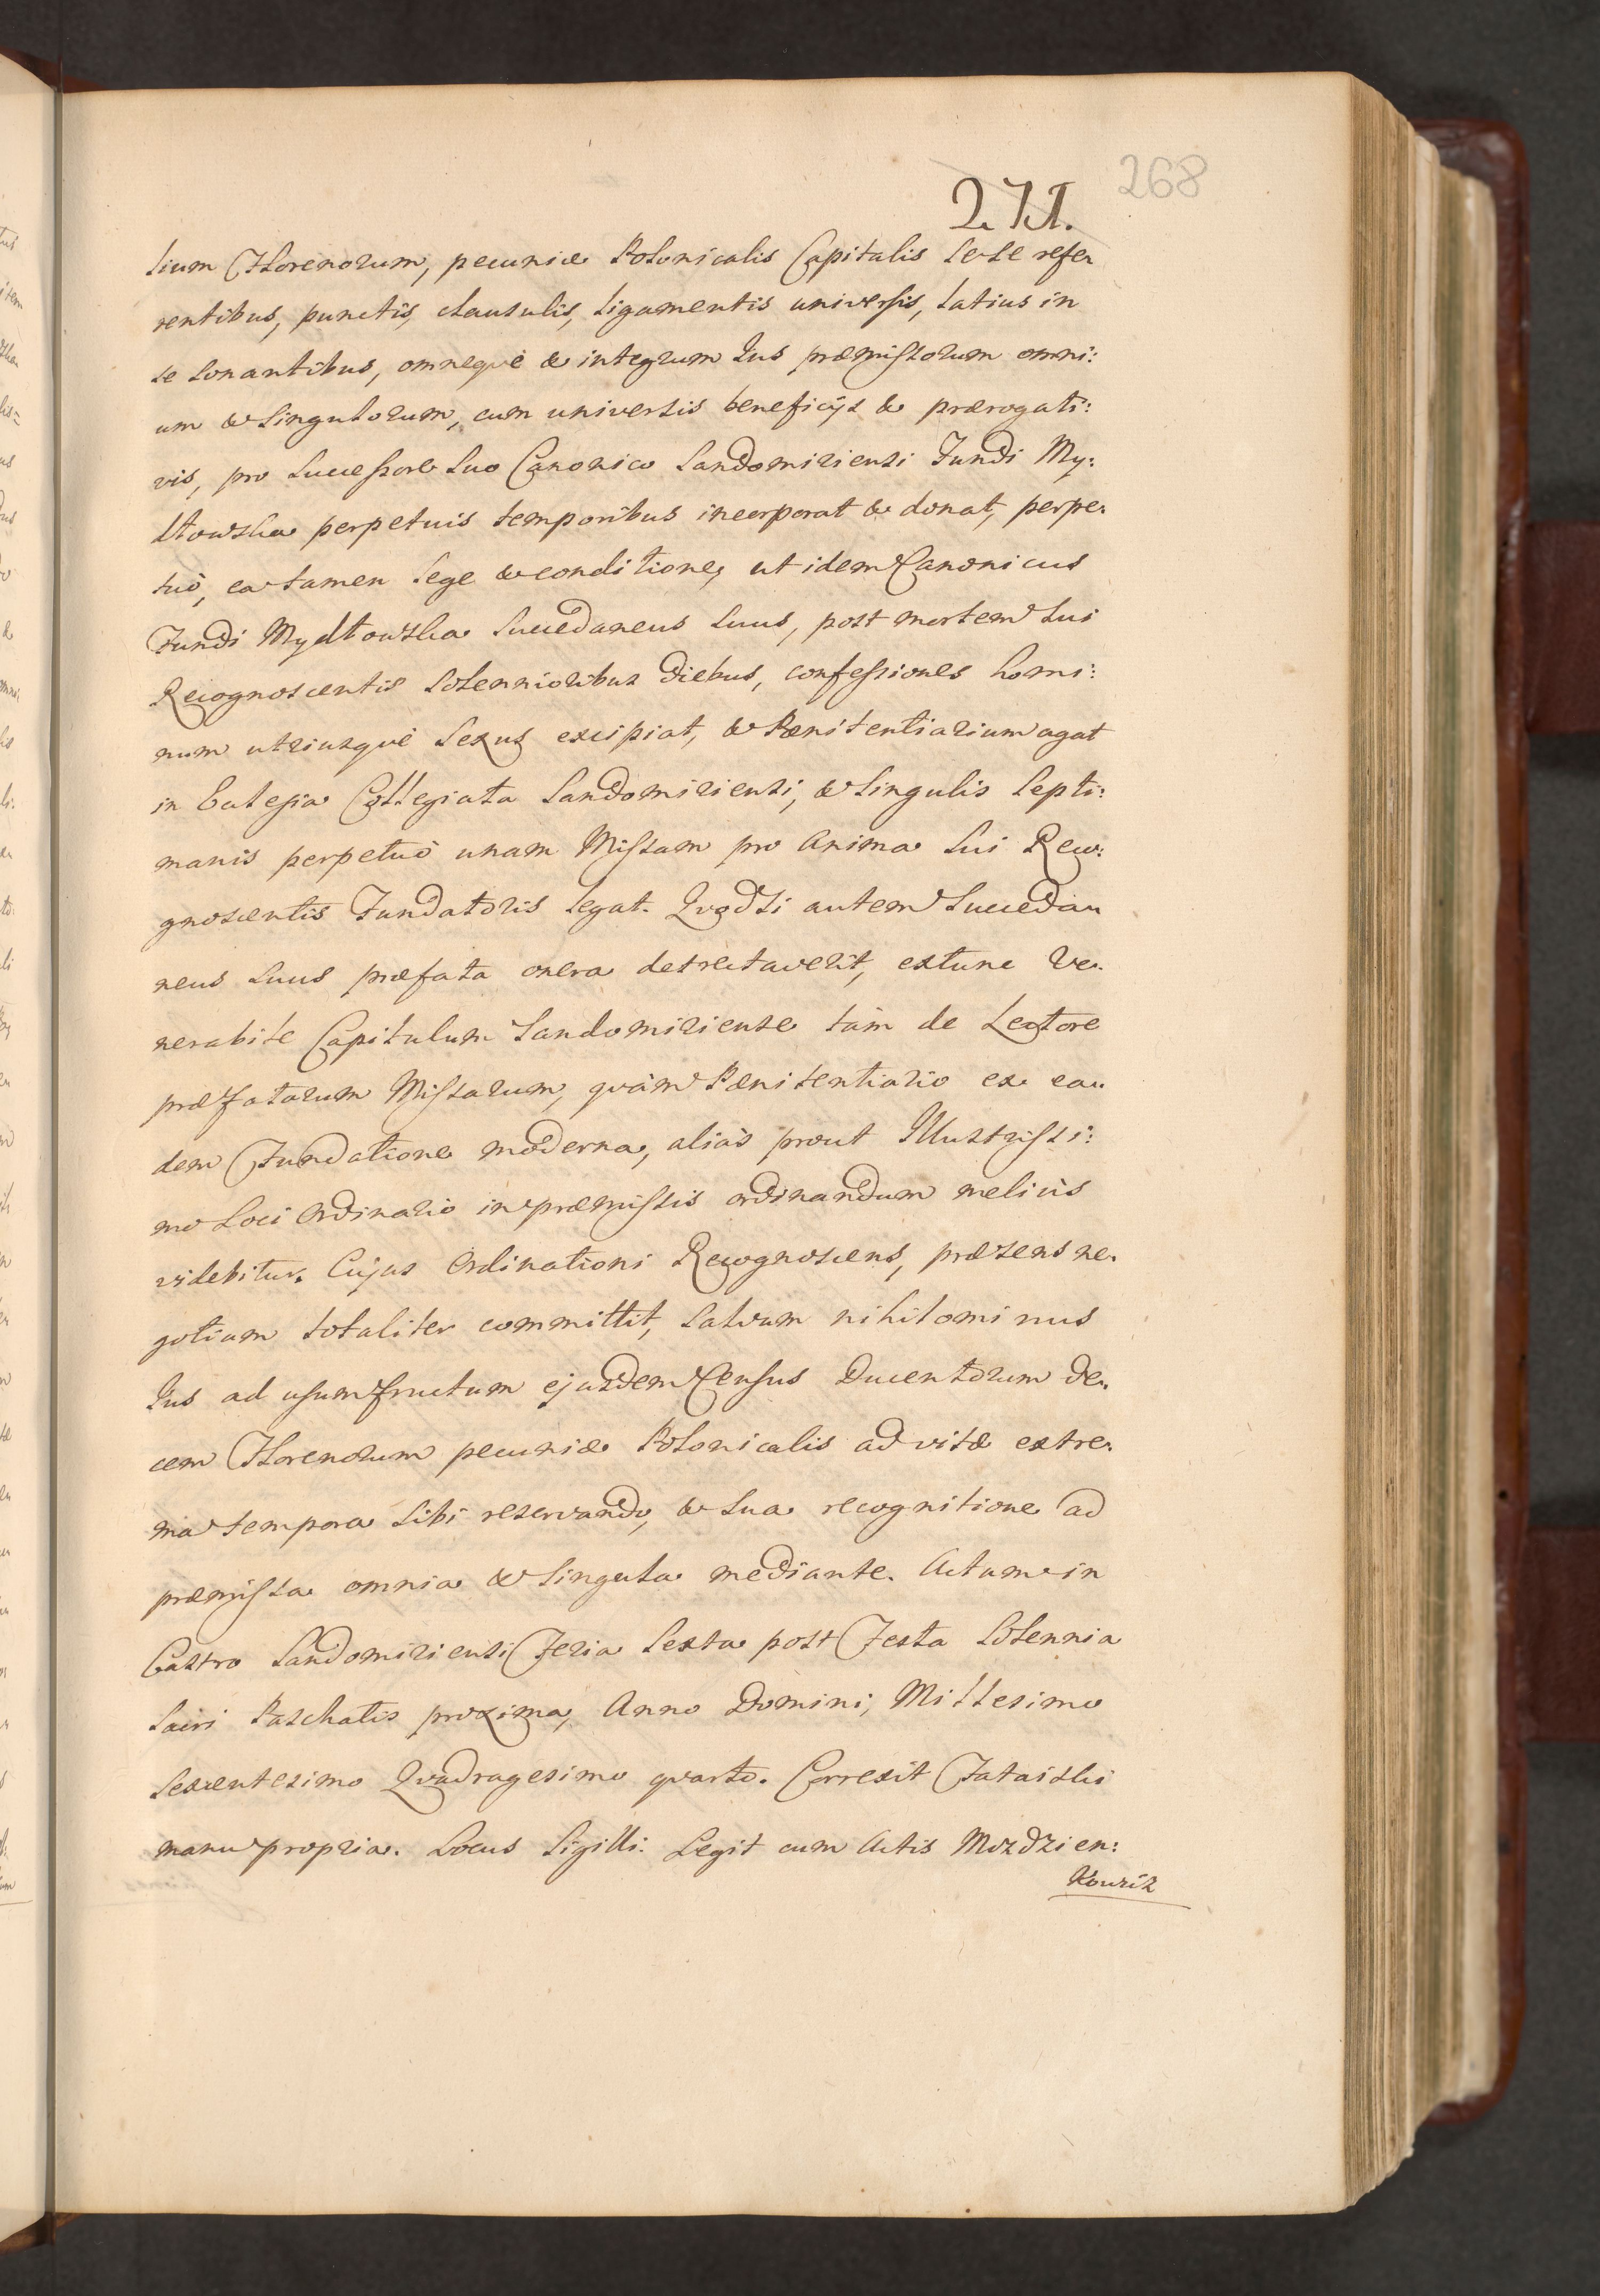 271.
268
lium Florenorum, pecuniæ Polonicalis Capitalis sese refe-
rentibus, punctis, clausulis, ligamentis universis, latius in
se sonantibus, omneque & integrum Jus præmissorum omni:
um & singulorum, cum universis beneficijs & prærogati:
vis, pro successore suo Canonico Sandomiriensi Fundi My:
dłowska perpetuis temporibus incorporat & donat, perpe-
tuò, ea tamen lege & conditione, ut idem Canonicus
Fundi Mydłowska succedaneus suus, post mortem sui
Recognoscentis solennioribus diebus, confessiones homi:
num utriusquè sexus excipiat, & Pænitentiarium agat
in Eclesia Collegiata Sandomiriensi, & singulis septi:
manis perpetuò unam Missam pro anima sui Reco:
gnoscentis Fundatoris legat. Qvodsi autem succeda-
neus suus præfata onera detrectaverit, extunc Ve-
nerabile Capitulum Sandomiriense tàm de Lectore
præfatarum Missarum, qvàm Pænitentiario ex ea-
dem Fundatione moderna, aliàs prout Illustrissi:
mo Loci Ordinario in præmissis ordinandum meliùs
videbitur. Cujus Ordinationi Recognoscens, præsens ne-
gotium totaliter committit, salvum nihilominus
Jus ad usumfructum ejusdem Census Ducentorum de-
cem Florenorum pecuniæ Polonicalis ad vitæ extre-
ma tempora sibi reservando, & sua recognitione ad
præmissa omnia & singula mediante. Actum in
Castro Sandomiriensi Feria sexta post Festa Solennia
Sacri Paschatis proxima, Anno Domini, Millesimo
Sexcentesimo Qvadragesimo qvarto. Correxit Fataiski
manu propria. Locus Sigilli. Legit cum Actis Mozdzien:
Kowiz